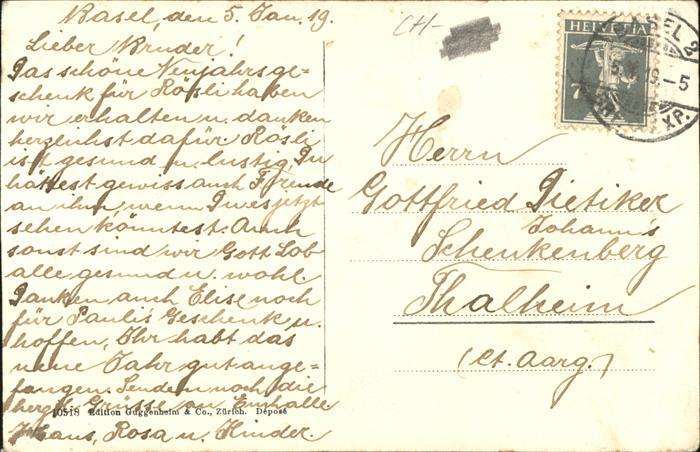 Basel, den 5. Jan. 19.
Lieber Bruder!
Das schöne Neujahrsge=
schenk für Rösli haben
wir erhalten u. danken
herzlichst dafür. Rösli
ist gesund u. lustig. Du
hättest gewiss auch Freude
an ihm wenn Du es jetzt
sehen könntest. Auch
sonst sind wir Gott Lob
alle gesund u. wohl.
Danken auch Elise noch
für Paulis Geschenk u.
hoffen, Ihr habt das
neue Jahr gut ange=
fangen. Senden noch die
herzl. Grüsse an Euch alle
Hans, Rosa u. Kinder.
10518 Edition Guggenheim & Co., Zürich. Déposé
CH-
HELVETIA
7½
BASEL 2
XP.
Herrn
Gottfried Dietiker
Johann's
Schenkenberg
Thalheim
(Ct. Aarg.)